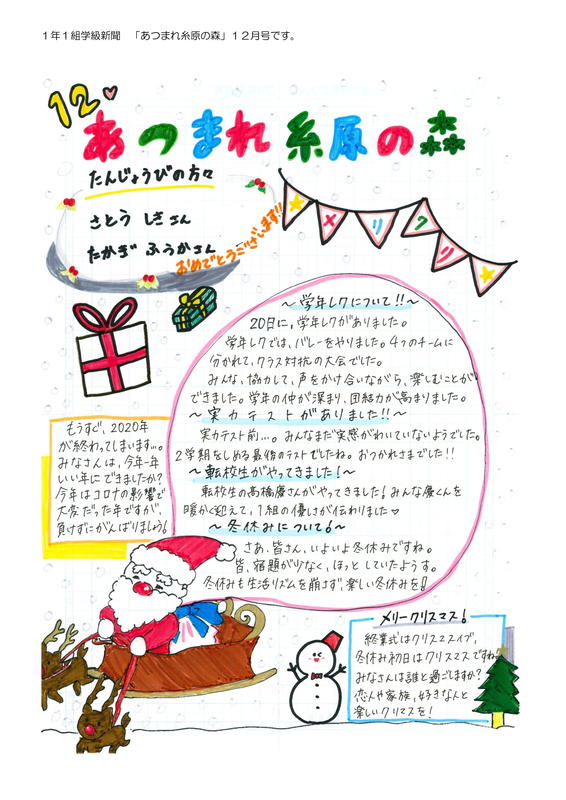 1年1組学級新聞　「あつまれ糸原の森」12月号です。
12
あつまれ糸原の森
たんじょうびの方々
さとう しきさん
たかぎ ふうかさん
おめでとうございます!!
メリクリ
～学年レクについて!!～
20日に、学年レクがありました。
学年レクでは、バレーをやりました。4つのチームに
分かれて、クラス対抗の大会でした。
みんな、協力して、声をかけ合いながら、楽しむことが
できました。学年の仲が深まり、団結力が高まりました。
～実力テストがありました!!～
実力テスト前…。みんなまだ実感がわいていないようでした。
2学期をしめる最後のテストでしたね。おつかれさまでした!!
～転校生がやってきました!～
転校生の高橋慶さんがやってきました!みんな慶くんを
暖かく迎えて、1組の優しさが伝わりました♡
～冬休みについて!～
さあ、皆さん、いよいよ冬休みですね。
皆、宿題が少なく、ほっとしていたようす。
冬休みも生活リズムを崩さず、楽しい冬休みを!
もうすぐ、2020年
が終わってしまいます…。
みなさんは、今年一年
いい年にできましたか?
今年はコロナの影響で
大変だった年ですが、
負けずにがんばりましょう!
メリークリスマス!
終業式はクリスマスイブ、
冬休み初日はクリスマスですね。
みなさんは誰と過ごしますか?
恋人や家族、好きな人と
楽しいクリマスを!